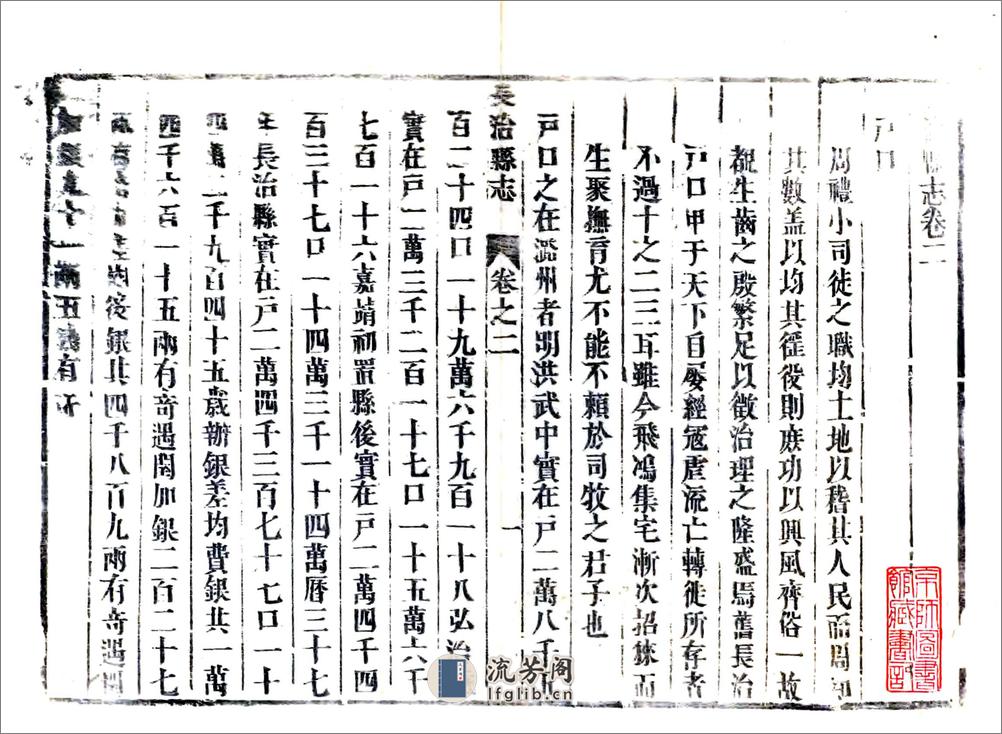 縣志卷二
戶口
周禮小司徒之職均土地以稽其人民而周知
其數蓋以均其徭役則庶功以興風齊俗一故
觀生齒之殷繁足以徵治理之隆盛焉舊長治
戶口甲于天下自屢經寇虐流亡轉徙所存者
不過十之二三耳雖今飛鴻集宅漸次招徠而
生聚撫育尤不能不賴於司牧之君子也
戶口之在潞州者明洪武中實在戶二萬八千九
長治縣志 卷之二 一
百二十四口一十九萬六千九百一十八弘治
實在戶二萬三千二百一十七口一十五萬六千
七百一十六嘉靖初置縣後實在戶二萬四千四
百三十七口一十四萬三千一十四萬曆三十七
年長治縣實在戶二萬四千三百七十七口一十
四萬二千九百四十五歲辦銀差均費銀共一萬
四千六百一十五兩有奇遇閏加銀二百二十七
後銀共四千八百九兩有奇遇閏
十一兩五錢有奇
宗師圖書館藏書記
流芳阁
lfglib.cn